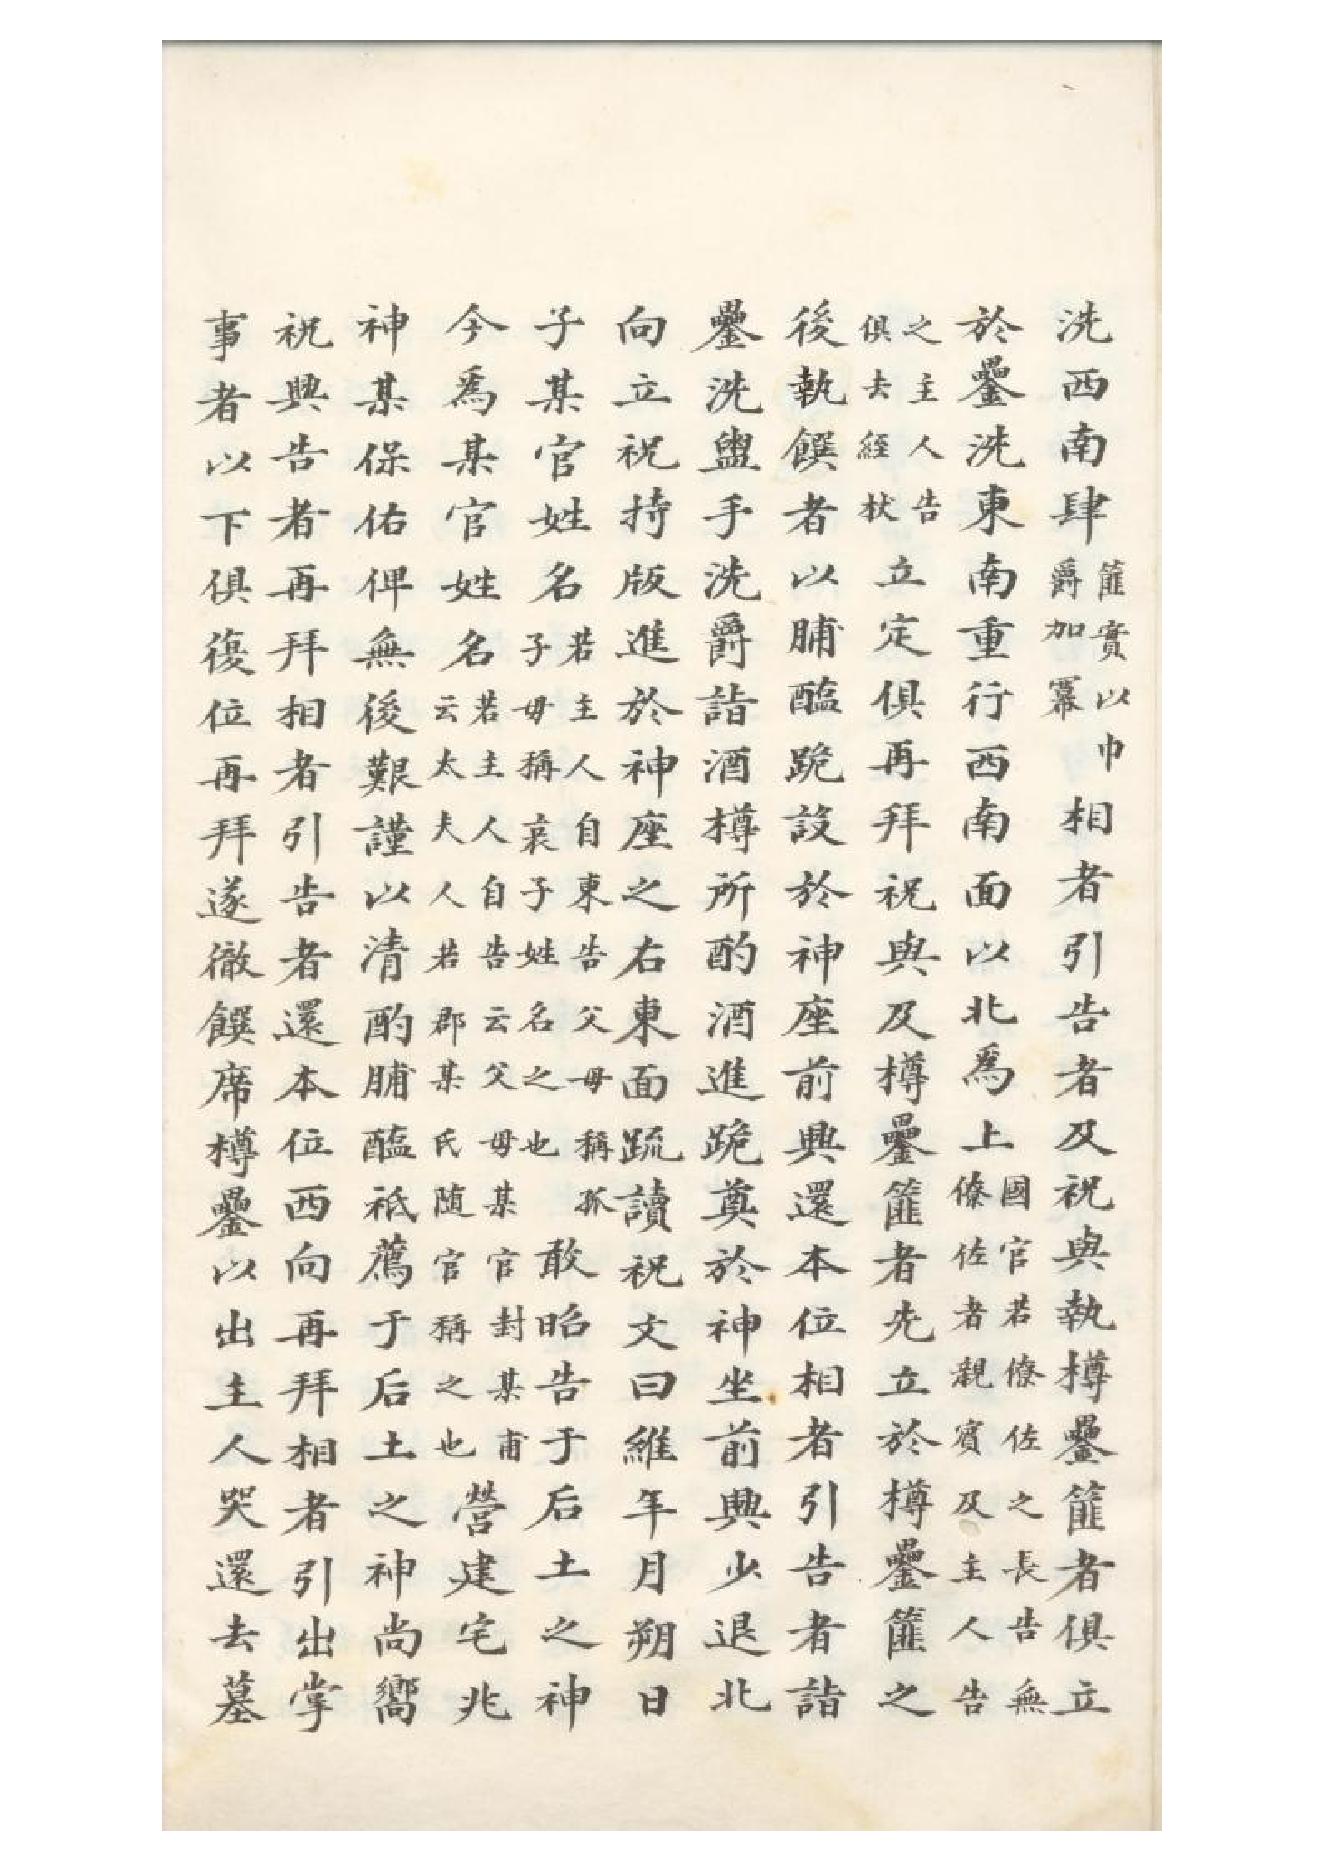 洗西南肆篚實以巾爵加冪相者引告者及祝與執樽罍篚者俱立
於罍洗東南重行西南面以北爲上國官若僚佐之長告無僚佐者親賓及主人告
之主人告俱去絰杖立定俱再拜祝與及樽罍篚者先立於樽罍篚之
後執饌者以脯醢跪設於神座前興還本位相者引告者詣
罍洗盥手洗爵詣酒樽所酌酒進跪奠於神坐前興少退北
向立祝持版進於神座之右東面跪讀祝文曰維年月朔日
子某官姓名若主人自柬告父母稱孤子母稱哀子姓名之也敢昭告于后土之神
今爲某官姓名若主人自告云父母某官封某甫云太夫人若郡某氏随官稱之也營建宅兆
神某保佑俾無後艱謹以清酌脯醢祗薦于后土之神尚嚮
祝興告者再拜相者引告者還本位西向再拜相者引出掌
事者以下俱復位再拜遂徹饌席樽罍以出主人哭還去墓